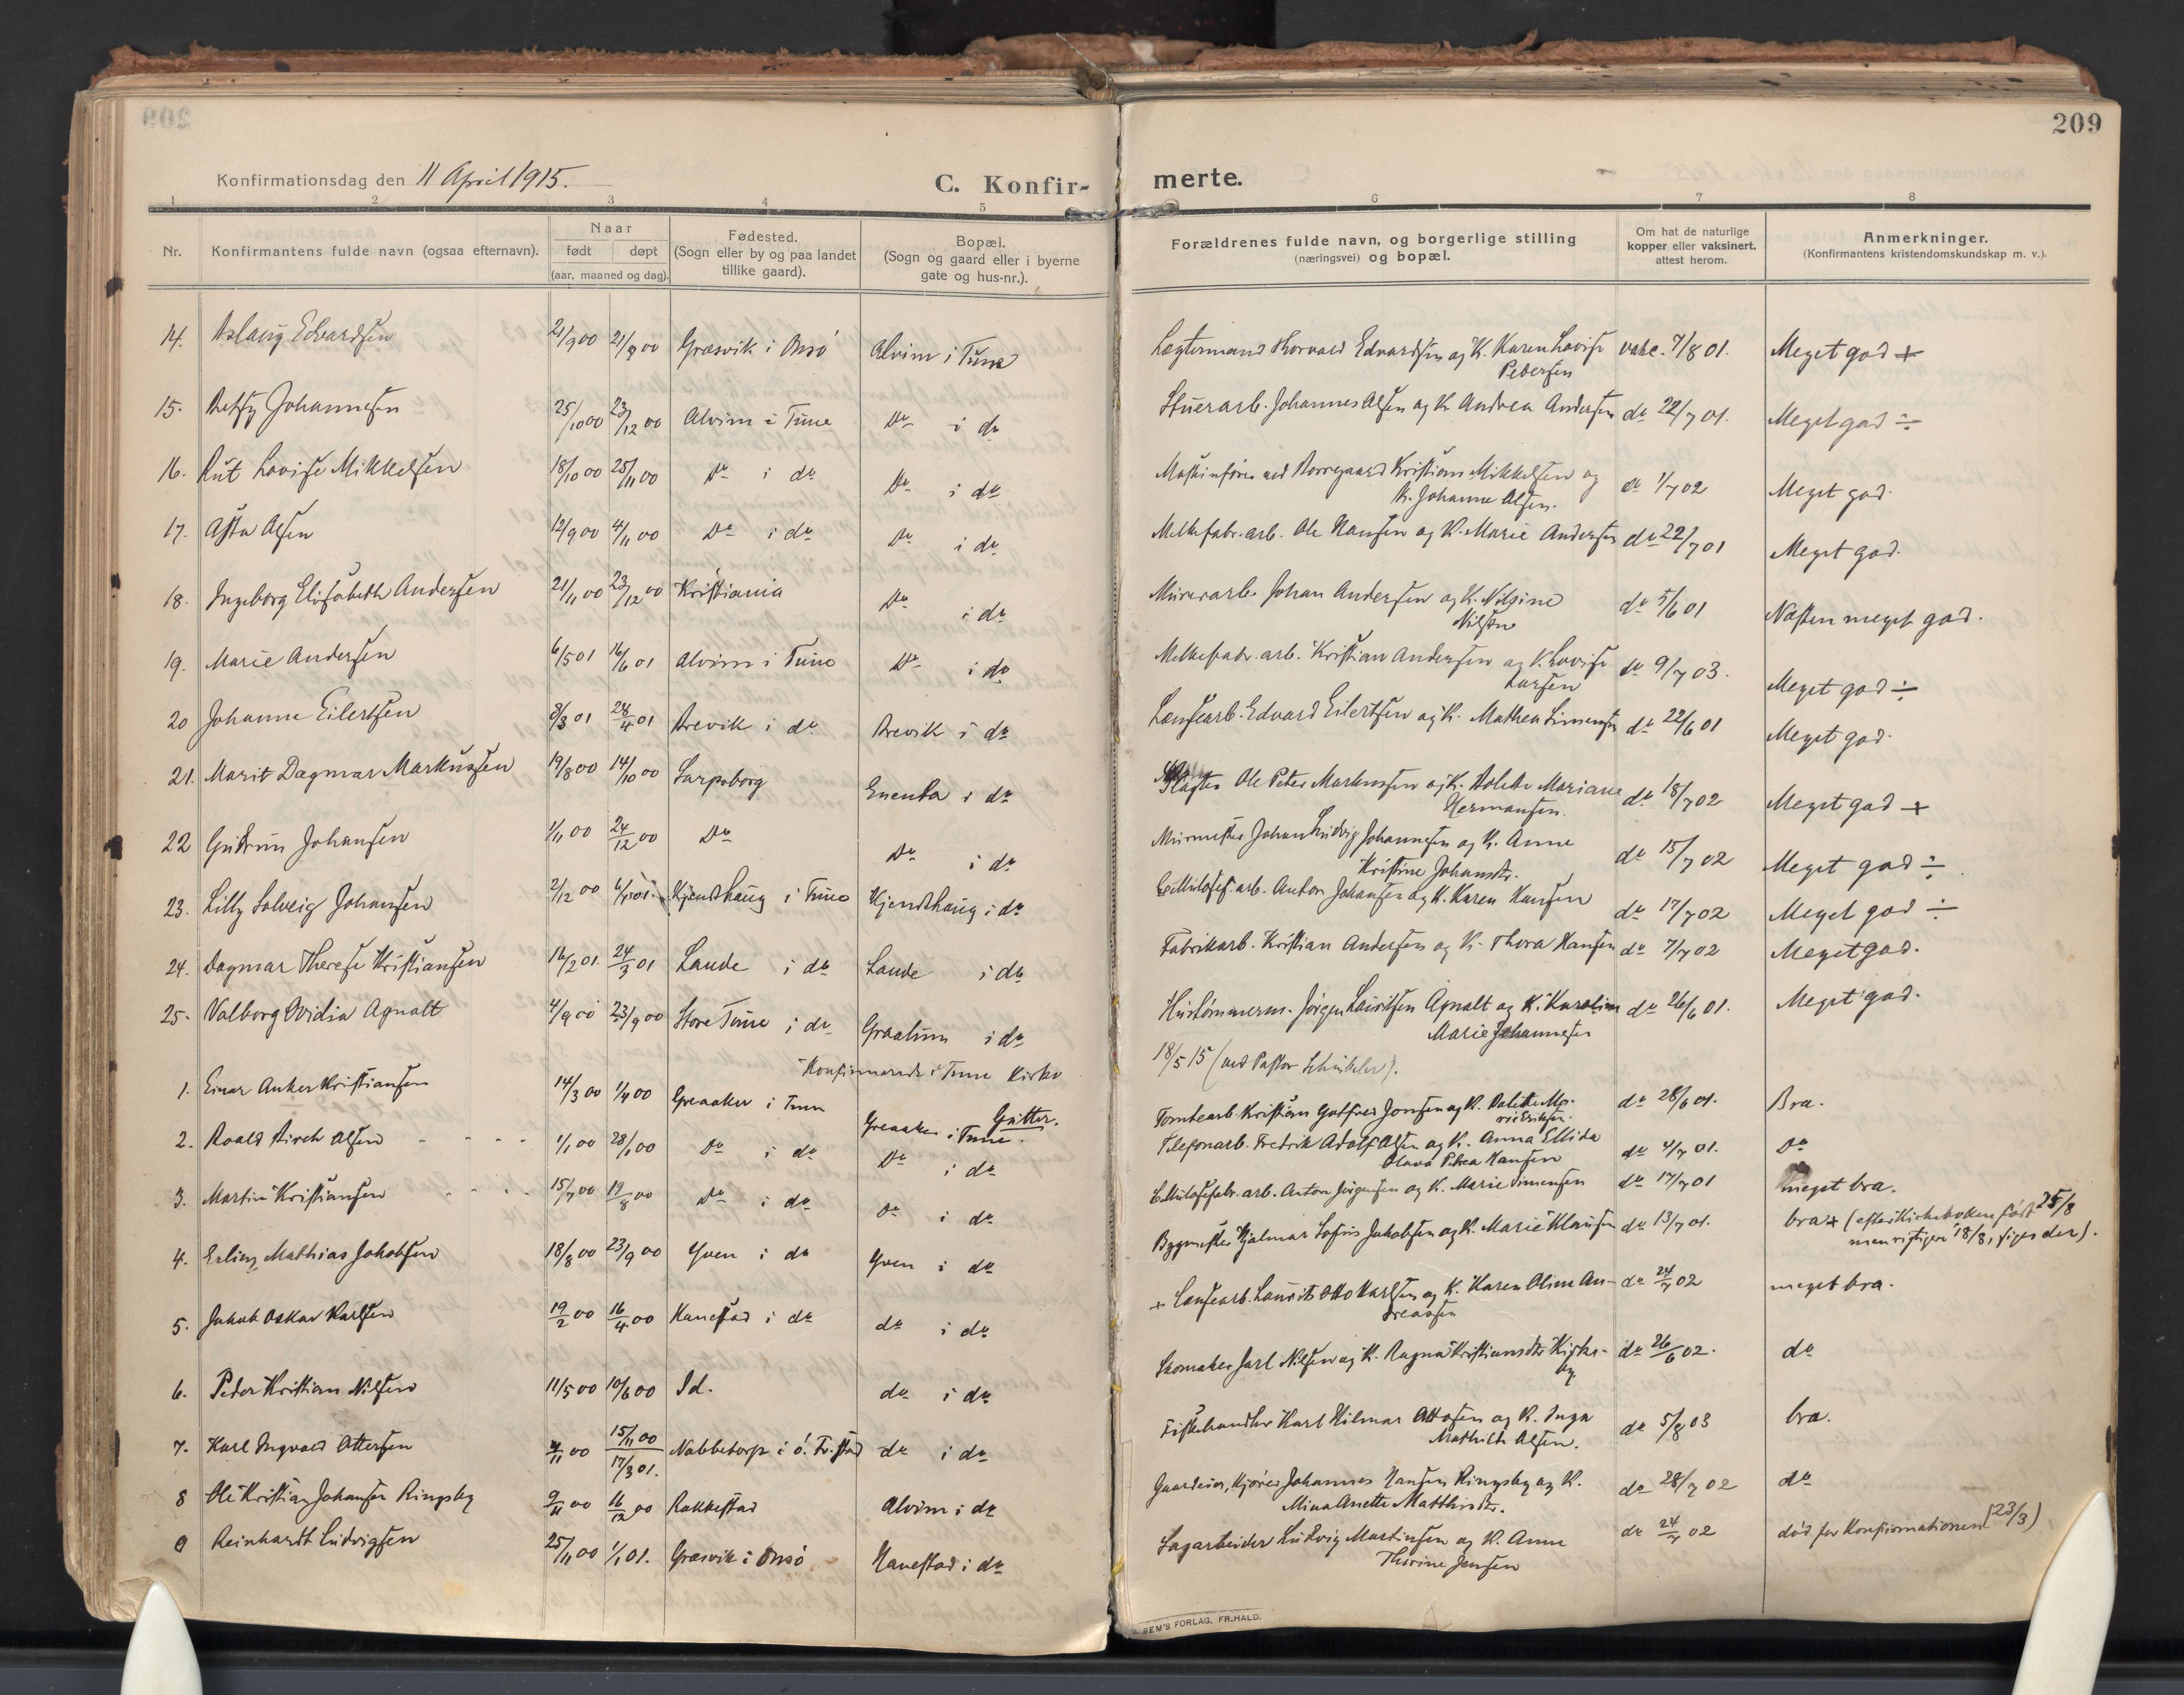 209
Konfirmationsdag den 11 April 1915.
C. Konfir-
merte.
1 2 3 4 5 6 7 8
Nr.
Konfirmantens fulde navn (ogsaa efternavn).
Naar
født døpt
(aar, maaned og dag).
Fødested.
(Sogn eller by og paa landet
tillike gaard).
Bopæl.
(Sogn og gaard eller i byerne
gate og hus-nr.).
Forældrenes fulde navn, og borgerlige stilling
(næringsvei) og bopæl.
Om hat de naturlige
kopper eller vaksinert.
attest herom.
Anmerkninger.
(Konfirmantens kristendomskundskap m. v.).
14. Aslaug Edvardsen 21/9 00 21/9 00 Græsvik i Onsö Alvim i Tune Thorvald Edvardsen og K. Karen Lovise vakc. 7/8 01. Meget god +
Pedersen
15. Betsy Johannesen 25/10 00 23/12 00 Alvim i Tune Do i do Stuerarb. Johannes Olsen og K. Andrea Andersen do 22/7 01. Meget god ÷
16. Rut Lovise Mikkelsen 18/10 00 25/11 00 Do i do Do i do Maskinfører ved Borregaard Kristian Mikkelsen og do 1/7 02 Meget god.
K. Johanne Olsen.
17. Asta Olsen 12/9 00 4/11 00 Do i do Do i do Melkefabr. arb. Ole Hansen og K. Marie Andersen do 22/7 01 Meget god.
18. Ingeborg Elisabeth Andersen 21/11 00 23/12 00 Kristiania Do i do Murerarb. Johan Andersen og K. Nilsine do 5/6 01 Næsten meget god.
Nilsen
19. Marie Andersen 6/5 01 16/6 01 Alvim i Tune Do i do Melkefabr. arb. Kristian Andersen og K. Lovise do 9/7 03. Meget god ÷
Larsen
20 Johanne Eilertsen 8/3 01 28/4 01 Brevik i do Brevik i do Lænsearb. Edvard Eilertsen og K. Mathea Simensen do 22/6 01 Meget god.
21. Marit Dagmar Markussen 19/8 00 14/10 00 Sarpsborg Enenda i do Slagter Ole Peter Markussen og K. Mariane do 18/7 02 Meget god +
Hermansen.
22 Gudrun Johansen 1/11 00 24/12 00 Do Do i do Murmester Johan Ludvig Johannesen og K. Anne do 15/7 02 Meget god ÷
Kristine Johansdtr.
23. Lilly Solveig Johansen 2/12 00 Kjendshaug i Tune Kjendshaug i do arb. Anton Johansen og K. Karen Hansen do 17/7 02 Meget god ÷
24. Dagmar Therese Kristiansen 16/2 01. 24/3 01 Lande i do Lande i do Fabrikarb. Kristian Andersen og K. Thora Hansen do 7/7 02 Meget god.
25. Valborg Ovidia Agnalt 4/9 00 23/9 00 Store Tune i do Graalum i do Hustømmerm. Jørgen Lauritsen Agnalt og K. Karoline do 26/6 01. Meget god.
Marie Johannesen
Konfirmerede i Tune Kirke 18/5 15 (ved Pastor Schübeler).
Gutter.
1. Einar Anker Kristiansen 14/3 00 1/4 00 Greaaker i Tune Greaaker i Tune. Tomtearb. Kristian Gotfred Jonsen og K. do 28/6 01. Bra.
2. Roald Birch Olsen 1/1 00 28/1 00 Do i do Do i do Telefonarb. Fredrik Adolf Olsen og K. Anna Ellida do 4/7 01. Do
Olava Petrea Hansen
3. Martin Kristiansen 15/7 00 19/8 00 Do i do Do i do arb. Anton Jørgensen og K. Marie Simensen do 17/7 01 meget bra.
4. Erling Mathias Jakobsen 18/8 00 23/9 00 Yven i do Yven i do Bygmester Hjalmar Sofus Jakobsen og K. Marie Klausen do 13/7 01. bra + (efter Kirkeboken født 25/8
men rigtigere 18/8, siges der).
5. Jakob Oskar Karlsen 19/2 00 16/4 00 Hanestad i do do i do + Lænsearb. Laurits Otto Karlsen og K. Karen Oline An- do 24/7 02 meget bra.
dreassen
6. Peder Kristian Nilsen 11/5 00 10/6 00 Id. do i do Skomaker Jarl Nilsen og K. Ragna Kristiansdtr Kirke- do 26/6 02. do
by.
7. Karl Ingvald Ottersen 4/11 00 15/11 00 Nabbetorp i ö. Fr.stad do i do Fiskehandler Karl Hilmar Ottosen og K. Inga do 5/8 03 bra.
17/3 01.
Mathilde Olsen.
8 Ole Kristian Johansen Ringsby 9/11 00 16/12 00 Rakkestad Alvim i do Gaardeier, Kjører Johannes Hansen Ringsby og K. do 28/7 02 do
Mina Anette Matthisdtr.
9 Reinhardt Ludvigsen 25/11 00 1/1 01. Græsvik i Onsö Hanestad i do Sagarbeider Ludvig Martinsen og K. Anne do 24/7 02 død før Konfirmationen (23/3)
Thorine Jensen
SEM'S FORLAG, FR.HALD.